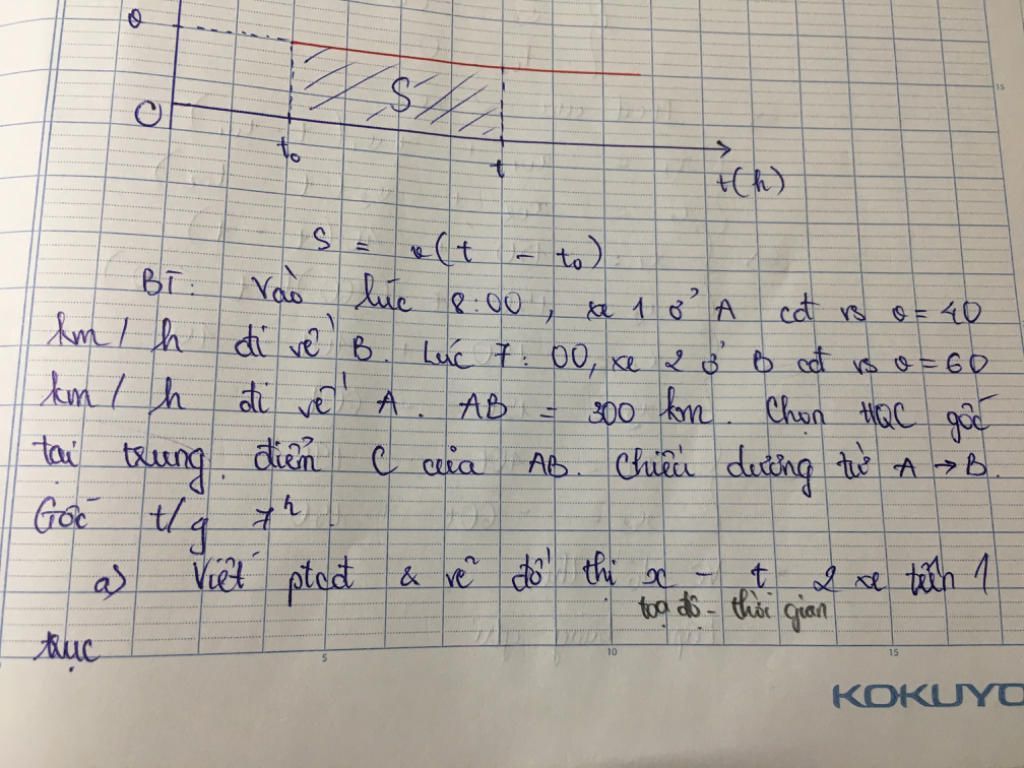 v
O
S
t₀
t
t(h)
S = v(t - t₀)
BT: Vào lúc 8:00, xe 1 ở A cđ vs v = 40
km/h đi về B. Lúc 7:00, xe 2 ở B cđ vs v = 60
km/h đi về A. AB = 300 km. Chọn HQC gốc
tại trung điểm C của AB. Chiều dương từ A → B.
Gốc t/g 7ʰ.
a) Viết ptcđ & vẽ đồ thị x - t 2 xe trên 1
toạ độ - thời gian
trục
5
10
15
15
KOKUYO